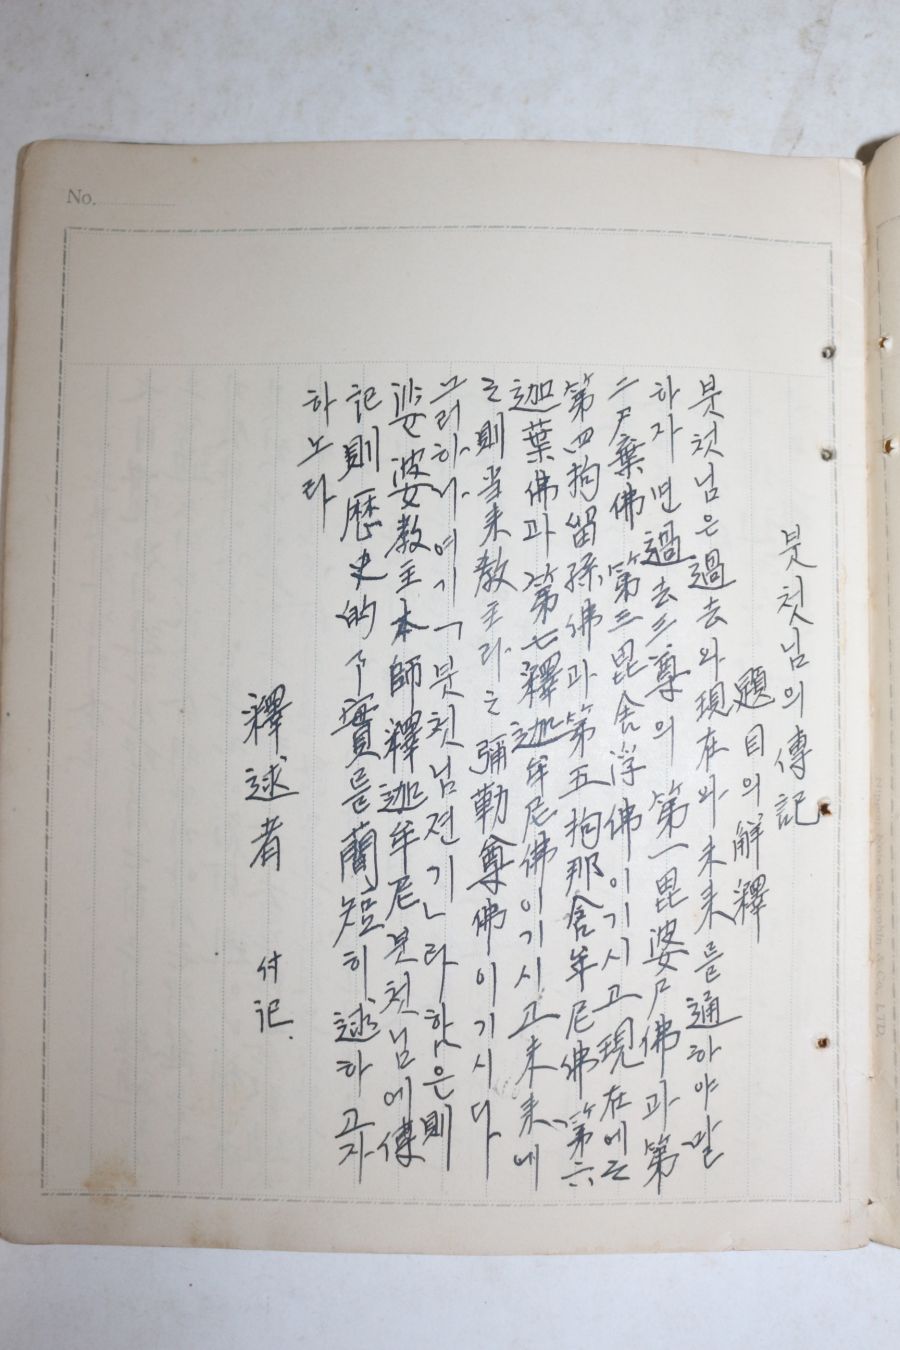 No.
붓첫님의 傳記
題目의 解釋
붓첫님은 過去와 現在와 未来를 通하야 말
하자면 過去三尊의 第一毘婆尸佛과 第
二尸棄佛 第三毘舍浮佛이기시고 現在에는
第四拘留孫佛과 第五拘那含牟尼佛 第六
迦葉佛과 第七釋迦牟尼佛이기시고 未来에
는 則当来教主라는 彌勒尊佛이기시다
그러하니 여기「붓첫님젼기」라 함은 則
娑婆教主本師釋迦牟尼붓첫님에 傳
記則歴史的事實를 蕳短히 逑하고자
하노라
釋逑者 付記.